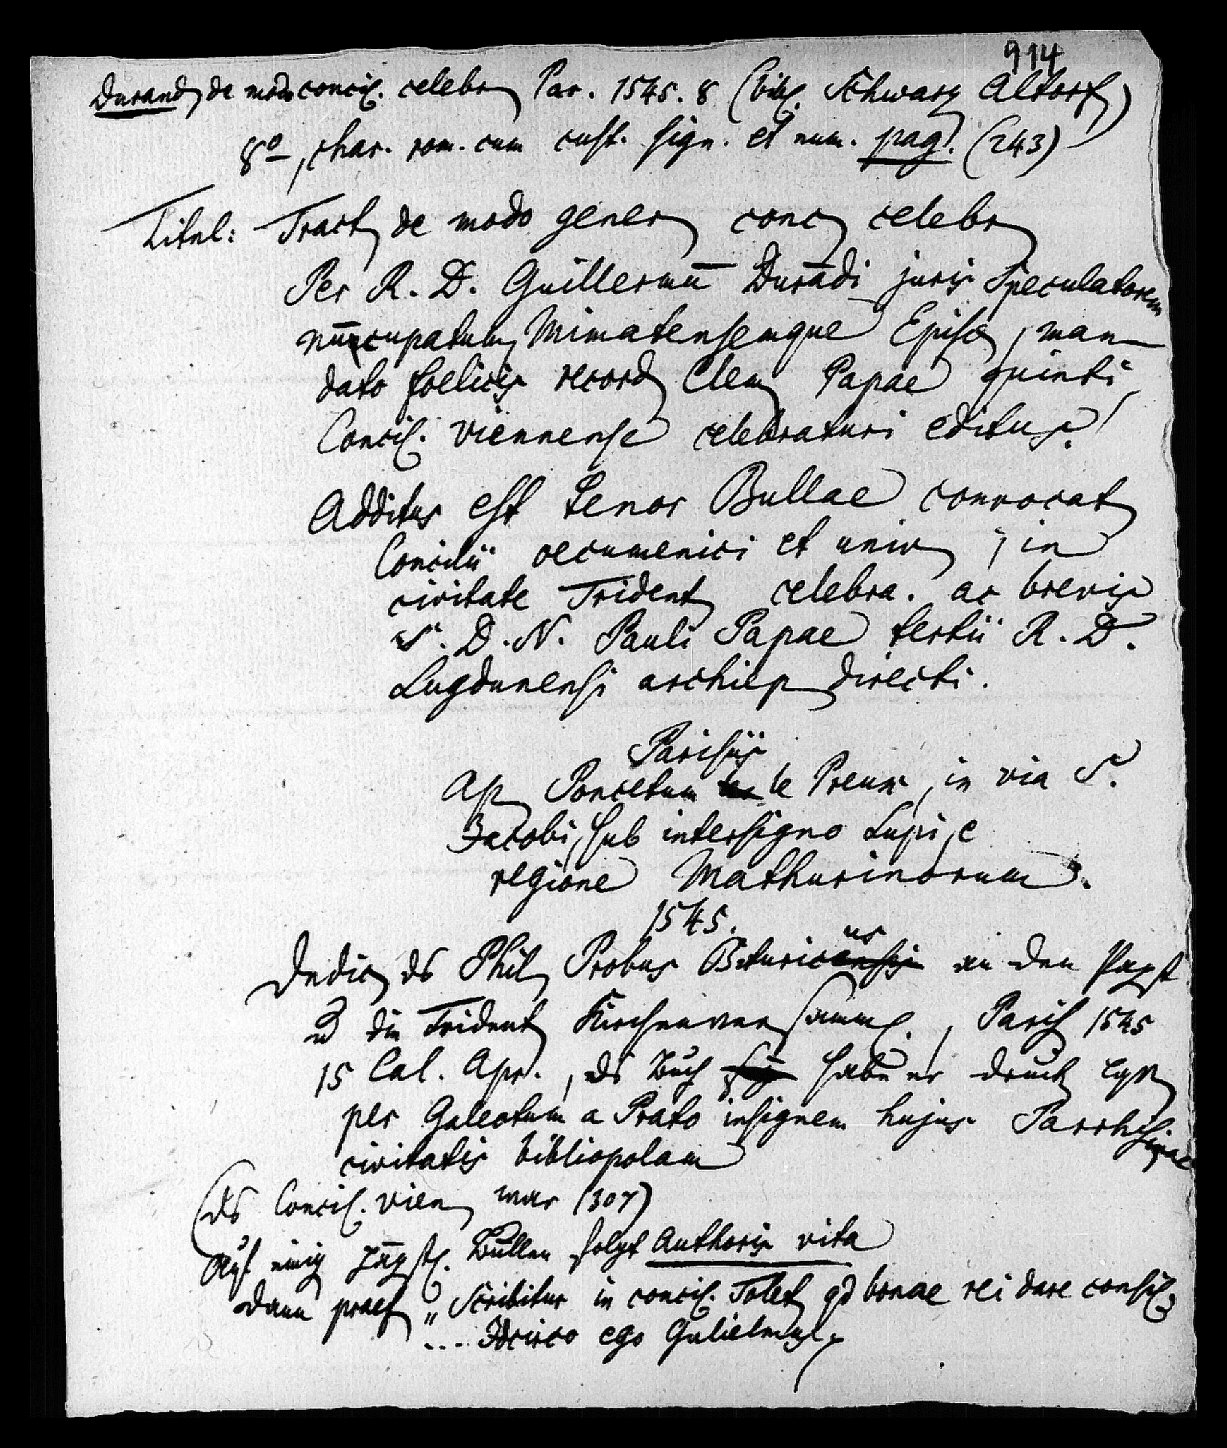 914
Durand, de modo concil. celebr Par. 1545. 8 (bibl. Schwarz Altorf)
8º, char. rom. cum cust. sign. et num. pag. (243)
Titul: Tract de modo gener conc celebr
Per R. D. Guillermū Durādi juris Speculatorem
nūcupatum Mimatensemque Episc, man
dato foelicis record Clem Papae quinti
Concil. viennense celebraturi editus!
Additus est tenor Bullae convocat
Concilii oecumenici et univ, in
civitate Trident celebra. ac brevis
S. D. N. Pauli Papae tertii R. D.
Lugdunensi archiep directi.
Parisiis
Ap Poncetum le Preux, in via S.
Jacobi, sub intersigno Lupi, e
regione Mathurinorum.
1545.
us
Dedic ds Phil Probus Bituricensis an den Papst
u die Trident Kirchenversamml., Paris 1545
15 Cal. Apr., ds Buch habe er druck lass
per Galeotum a Prato insignem hujus Parrhisinae
civitatis bibliopolam
(ds Concil. vien war (307)
Auf einig Bullen folgt Authoris vita
dann praef „Scribitur in concil. Tolet qd bonae rei dare consil
... Idcirco ego Gulielmus